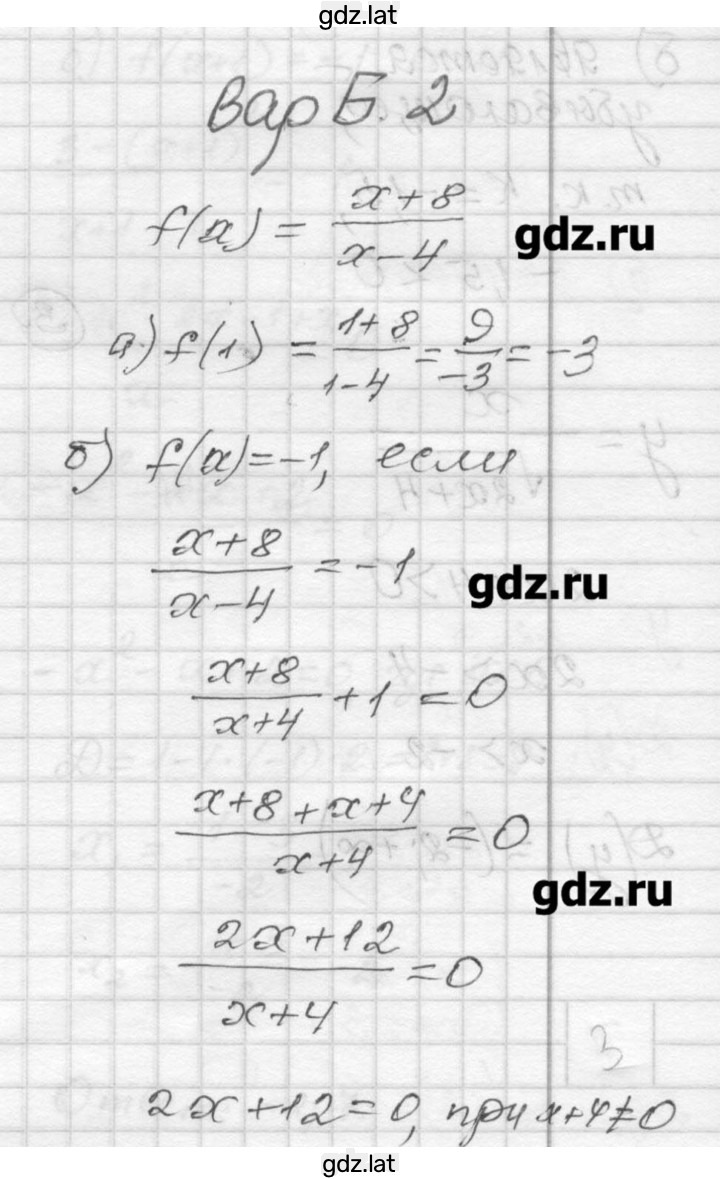 gdz.lat
вар Б. 2
f(x) = (x+8)/(x-4)
gdz.ru
а) f(1) = (1+8)/(1-4) = 9/(-3) = -3
б) f(x)=-1, если
(x+8)/(x-4) = -1
gdz.ru
(x+8)/(x+4) + 1 = 0
(x+8+x+4)/(x+4) = 0
gdz.ru
(2x+12)/(x+4) = 0
3
2x+12=0, при x+4≠0
gdz.lat